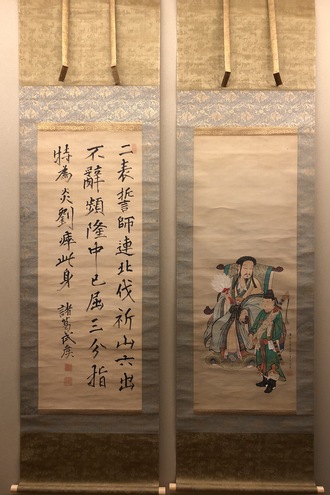 二表誓師連北伐祈山六出
不辭頻隆中已屈三分指
特為炎劉瘁此身
諸葛武侯